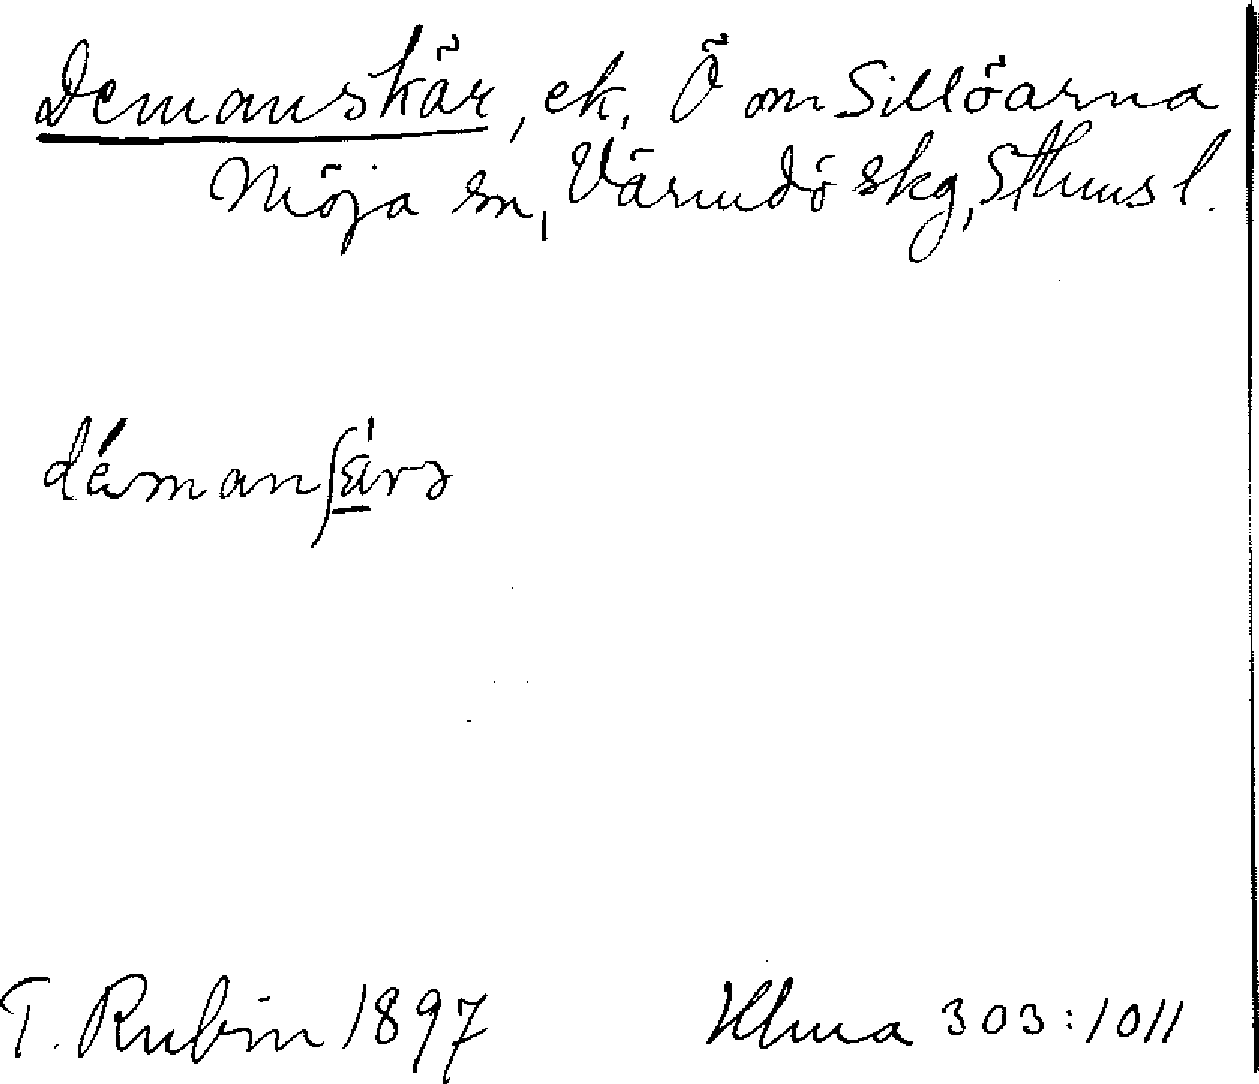 Demanskär, ek. Ö om Sillöarna
Möja sn, Värmdö skg, Sthms l.
démanʃä̀rs
T. Rubin 1897 Klma 303:1011